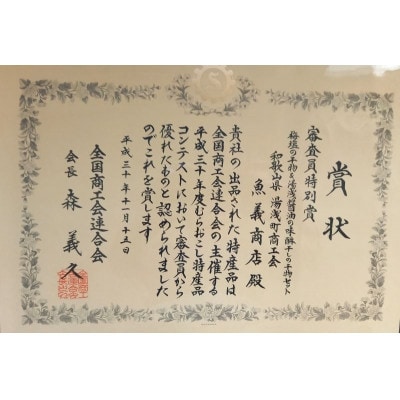 賞状
審査員特別賞
梅塩の干物と湯浅醤油の味醂干しの干物セット
和歌山県 湯浅町商工会
魚義商店殿
貴社の出品された特産品は
全国商工会連合会の主催する
平成三十年度むらおこし特産品
コンテストにおいて審査員から
優れたものと認められました
のでこれを賞します
平成三十年十一月十五日
全国商工会連合会
会長 森 義久